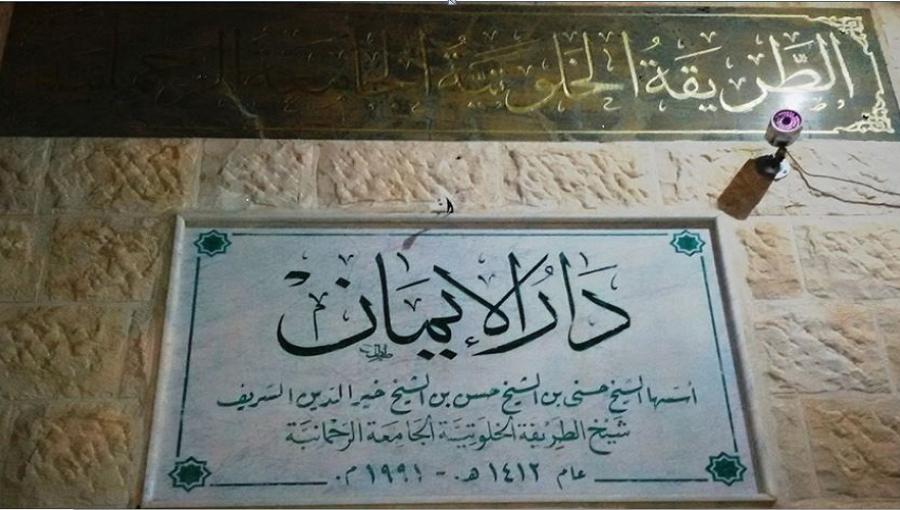 الطَّرِيقَةُ الخَلْوَتِيَّةُ الجَامِعَةُ الرَّحْمَانِيَّةُ
دَارُ الإِيمَان
أسَّسَها الشيخ حسني بن الشيخ حسن بن الشيخ خير الدين الشريف
شَيْخ الطَّرِيقَة الخَلْوَتِيَّة الجَامِعَة الرَّحْمَانِيَّة
عام ١٤١٢ هـ - ١٩٩١ م.